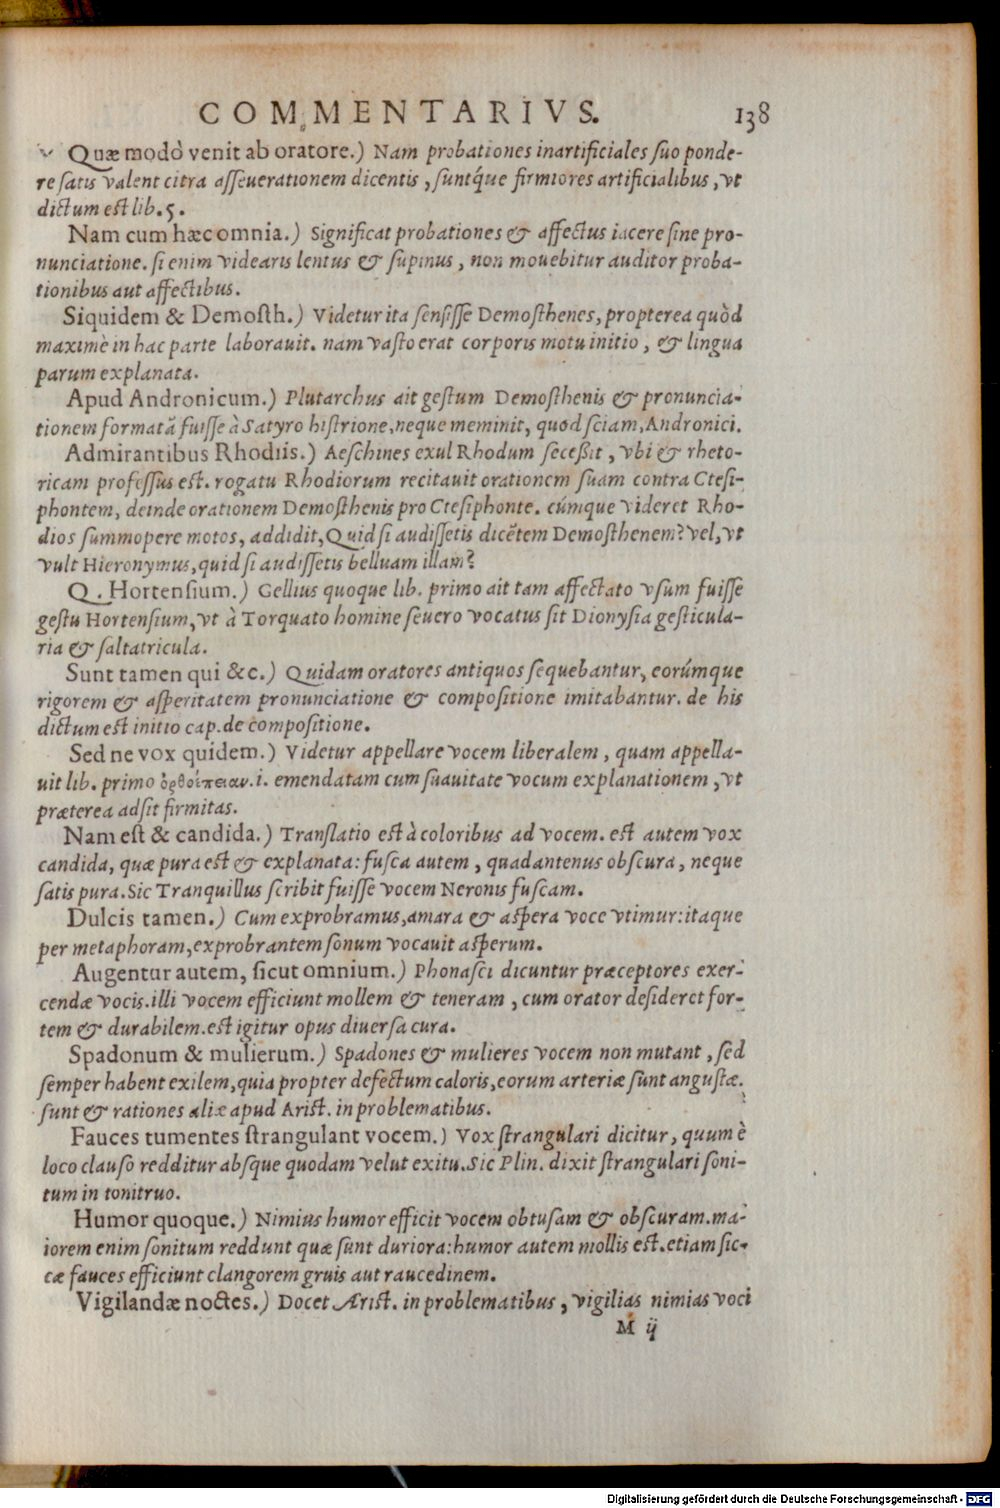 COMMENTARIVS. 138
Quæ modò venit ab oratore.) Nam probationes inartificiales ſuo ponde-
re ſatis valent citra aſſeuerationem dicentis, ſuntq́ue firmiores artificialibus, vt
dictum eſt lib. 5.
Nam cum hæc omnia.) Significat probationes & affectus iacere ſine pro-
nunciatione. ſi enim videaris lentus & ſupinus, non mouebitur auditor proba-
tionibus aut affectibus.
Siquidem & Demoſth.) Videtur ita ſenſiſſe Demoſthenes, propterea quòd
maximè in hac parte laborauit. nam vaſto erat corporis motu initio, & lingua
parum explanata.
Apud Andronicum.) Plutarchus ait geſtum Demoſthenis & pronuncia-
tionem formatã fuiſſe à Satyro hiſtrione, neque meminit, quod ſciam, Andronici.
Admirantibus Rhodiis.) Aeſchines exul Rhodum ſeceßit, vbi & rheto-
ricam profeſſus eſt. rogatu Rhodiorum recitauit orationem ſuam contra Cteſi-
phontem, deinde orationem Demoſthenis pro Cteſiphonte. cúmque videret Rho-
dios ſummopere motos, addidit, Quid ſi audiſſetis dicẽtem Demoſthenem? vel, vt
vult Hieronymus, quid ſi audiſſetis belluam illam?
Q. Hortenſium.) Gellius quoque lib. primo ait tam affectato vſum fuiſſe
geſtu Hortenſium, vt à Torquato homine ſeuero vocatus ſit Dionyſia geſticula-
ria & ſaltatricula.
Sunt tamen qui &c.) Quidam oratores antiquos ſequebantur, eorúmque
rigorem & aſperitatem pronunciatione & compoſitione imitabantur. de his
dictum eſt initio cap. de compoſitione.
Sed ne vox quidem.) Videtur appellare vocem liberalem, quam appella-
uit lib. primo ὀρθοέπειαν .i. emendatam cum ſuauitate vocum explanationem, vt
præterea adſit firmitas.
Nam eſt & candida.) Tranſlatio eſt à coloribus ad vocem. eſt autem vox
candida, quæ pura eſt & explanata: fuſca autem, quadantenus obſcura, neque
ſatis pura. Sic Tranquillus ſcribit fuiſſe vocem Neronis fuſcam.
Dulcis tamen.) Cum exprobramus, amara & aſpera voce vtimur: itaque
per metaphoram, exprobrantem ſonum vocauit aſperum.
Augentur autem, ſicut omnium.) Phonaſci dicuntur præceptores exer-
cendæ vocis. illi vocem efficiunt mollem & teneram, cum orator deſideret for-
tem & durabilem. eſt igitur opus diuerſa cura.
Spadonum & mulierum.) Spadones & mulieres vocem non mutant, ſed
ſemper habent exilem, quia propter defectum caloris, eorum arteriæ ſunt anguſtæ.
ſunt & rationes aliæ apud Ariſt. in problematibus.
Fauces tumentes ſtrangulant vocem.) Vox ſtrangulari dicitur, quum è
loco clauſo redditur abſque quodam velut exitu. Sic Plin. dixit ſtrangulari ſoni-
tum in tonitruo.
Humor quoque.) Nimius humor efficit vocem obtuſam & obſcuram. ma-
iorem enim ſonitum reddunt quæ ſunt duriora: humor autem mollis eſt. etiam ſic-
cæ fauces efficiunt clangorem gruis aut raucedinem.
Vigilandæ noctes.) Docet Æriſt. in problematibus, vigilias nimias voci
M ij
Digitalisierung gefördert durch die Deutsche Forschungsgemeinschaft - DFG